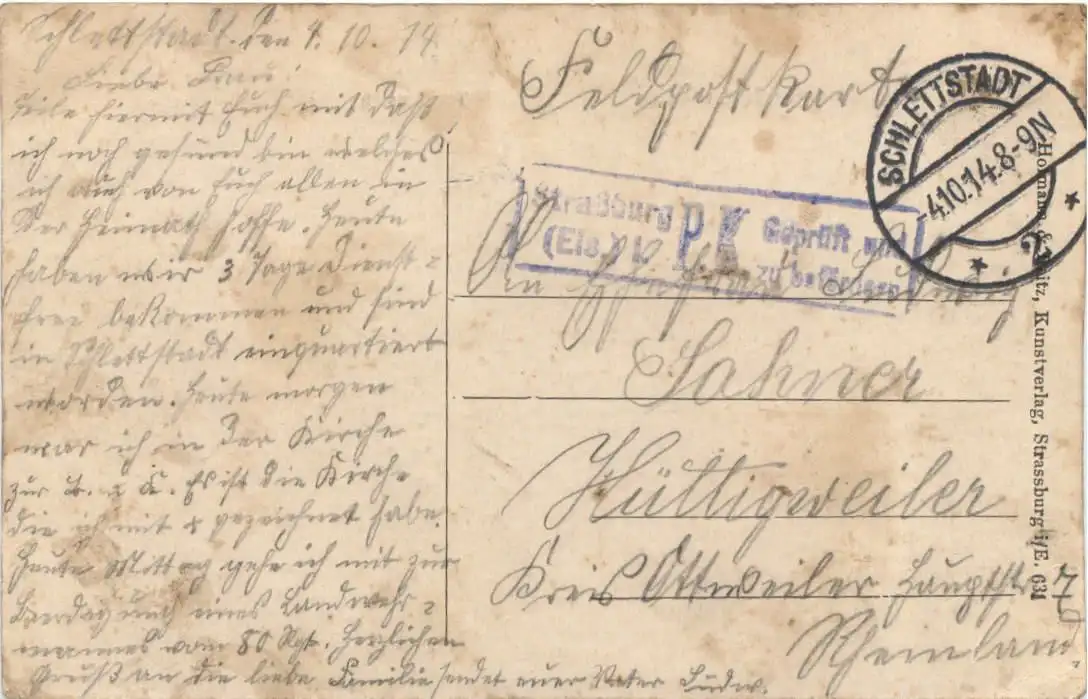 Schlettstadt. den 4. 10. 14.
Liebe Frau!
Teile hiermit Euch mit daß
ich noch gesund bin welches
ich auch von Euch allen in
der Heimath hoffe. Heute
haben wir 3 Tage dienst=
frei bekommen und sind
in Schlettstadt einquartiert
worden. Heute morgen
war ich in der Kirche
zur B. u K. Es ist die Kirche
die ich mit x gezeichnet habe.
Heute Mittag gehe ich mit zur
Beerdigung eines Landwehr=
mannes vom 80 Rgt. Herzlichen
Gruß an die liebe Familie sendet euer Vater Ludw.
Feldpostkarte
SCHLETTSTADT
-4.10.14.8-9N
* 2 *
Straßburg P.K. Geprüft und
(Els.) zu befördern
An Ludwig
Sahner
Hüttigweiler
Kreis Ottweiler Hauptstr
Rheinland
Hofmann & Kunstverlag, Strassburg i/E. 631